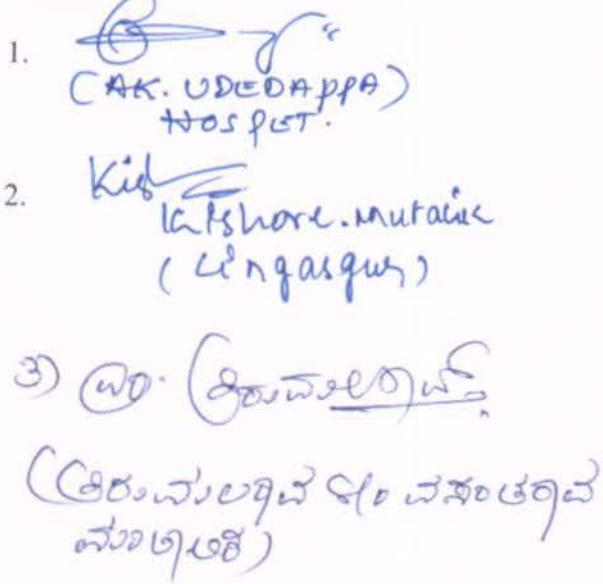 1.
(AK. UDEDAPPA)
HOSPET.
2. Kish
Kishore. Mutalik
(Lingasgur)
3) ಎಂ. ತಿರುಮಲರಾವ್
(ತಿರುಮಲರಾವ S/o ವಸಂತರಾವ